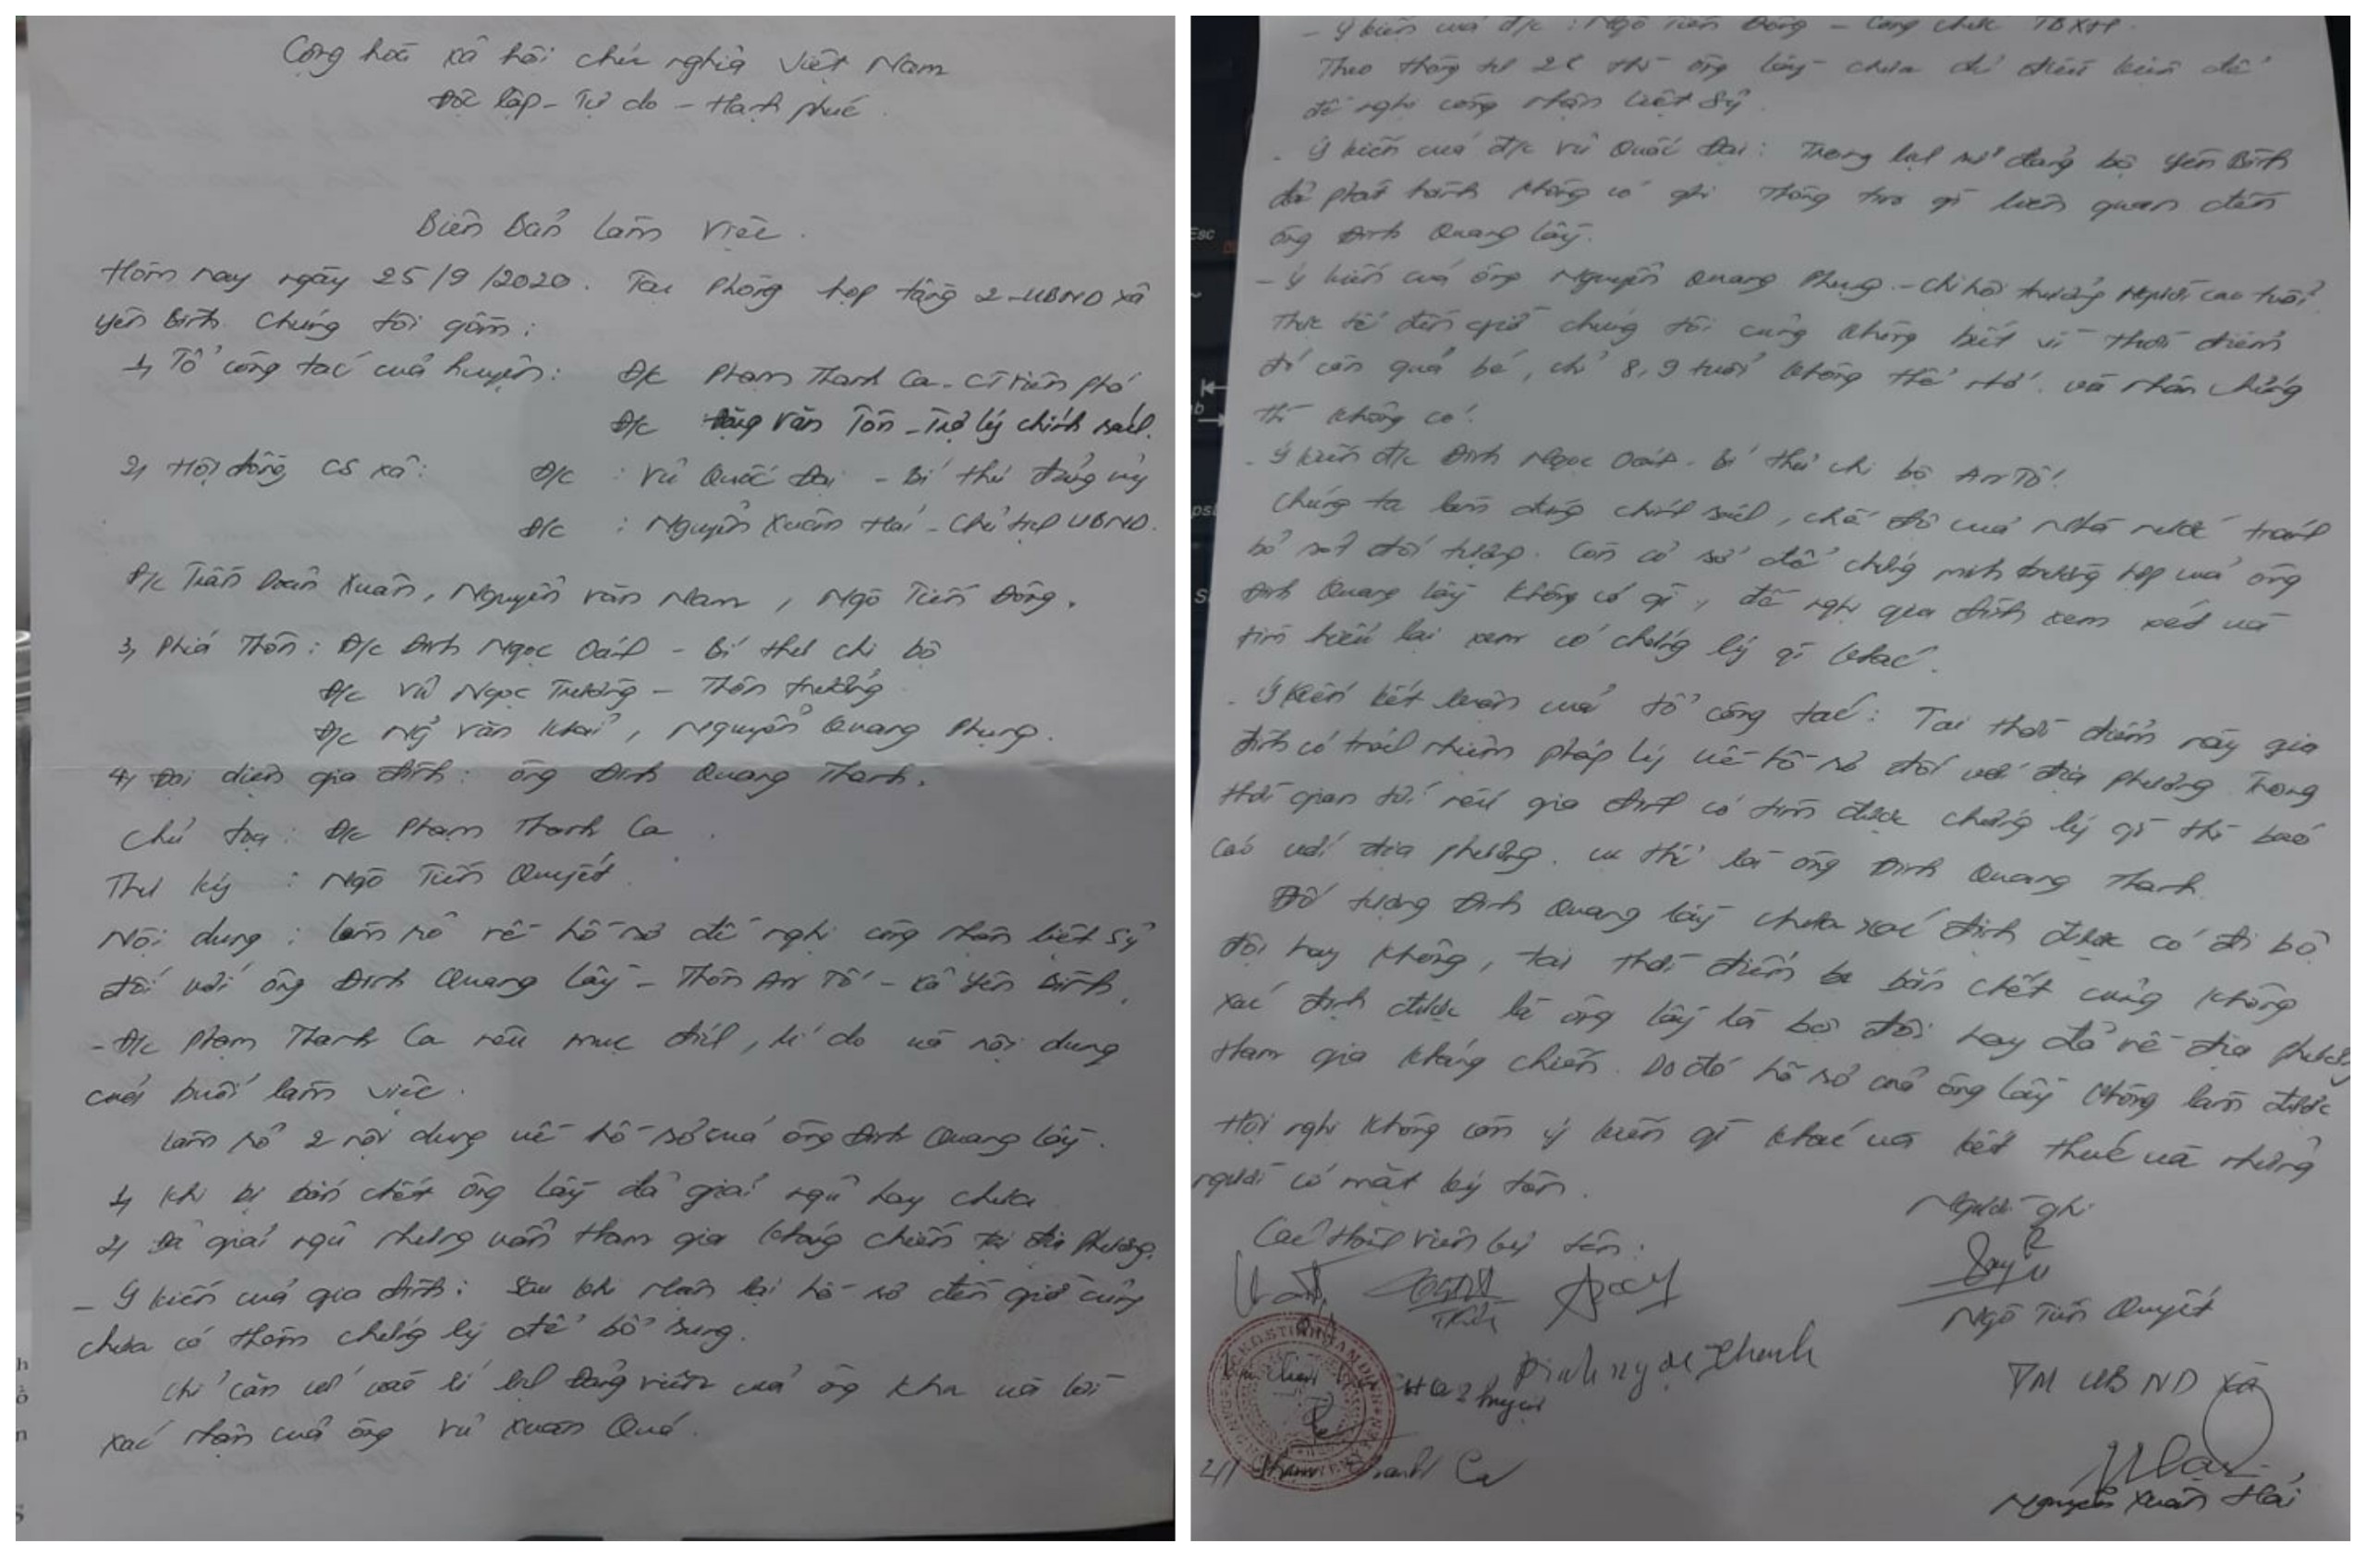 Cộng hoà xã hội chủ nghĩa Việt Nam
Độc lập - Tự do - Hạnh phúc.
Biên Bản làm việc.
Hôm nay ngày 25/9/2020. Tại Phòng họp tầng 2 - UBND xã
Yên Bình. Chúng tôi gồm:
1, Tổ công tác của huyện: Đ/c Phạm Thanh Ca - CT viên phó
Đ/c Đặng Văn Tôn - Trợ lý chính sách.
2, Hội đồng CS xã: Đ/c : Vũ Quốc Đại - Bí thư Đảng ủy
Đ/c : Nguyễn Xuân Hải - Chủ tịch UBND.
Đ/c Trần Doãn Xuân, Nguyễn Văn Nam, Ngô Tiến Đông.
3, Phía Thôn: Đ/c Đinh Ngọc Oánh - Bí thư chi bộ
Đ/c Vũ Ngọc Trường - Thôn trưởng
Đ/c Ng̃ Văn Khải, Nguyễn Quang Phụng.
4, Đại diện gia đình: ông Đinh Quang Thanh.
Chủ tọa: Đ/c Phạm Thanh Ca.
Thư ký : Ngô Tiến Quyết.
Nội dung: làm rõ về hồ sơ đề nghị công nhận liệt sỹ
đối với ông Đinh Quang Lây - Thôn An Tố - xã Yên Bình.
- Đ/c Phạm Thanh Ca nêu mục đích, lí do và nội dung
của buổi làm việc.
Làm rõ 2 nội dung về hồ sơ của ông Đinh Quang Lây.
1, Khi bị bắn chết ông Lây đã giải ngũ hay chưa
2, Đã giải ngũ nhưng vẫn tham gia kháng chiến tại địa phương.
- Ý kiến của gia đình: Sau khi nhận lại hồ sơ đến giờ cũng
chưa có thêm chứng lý để bổ sung.
Chỉ căn cứ vào lí lịch Đảng viên của ông Kha và lời
xác nhận của ông Vũ Xuân Quá.
- Ý kiến của đ/c : Ngô Tiến Đông - Công chức TBXH.
Theo thông tư 28 thì ông Lây chưa đủ điều kiện để
đề nghị công nhận Liệt Sỹ.
- Ý kiến của đ/c Vũ Quốc Đại: Trong lịch sử đảng bộ Yên Bình
đã phát hành không có ghi thông tin gì liên quan đến
ông Đinh Quang Lây.
- Ý kiến của ông Nguyễn Quang Phụng - chi hội trưởng Người cao tuổi.
Thực tế đến giờ chúng tôi cũng không biết vì thời điểm
đó còn quá bé, chỉ 8, 9 tuổi không thể nhớ. và nhân chứng
thì không có.
- Ý kiến đ/c Đinh Ngọc Oánh - bí thư chi bộ An Tố:
Chúng ta làm đúng chính sách, chế độ của nhà nước tránh
bỏ sót đối tượng. Còn cơ sở để chứng minh trường hợp của ông
Đinh Quang Lây không có gì, đề nghị gia đình xem xét và
tìm hiểu lại xem có chứng lý gì khác.
- Ý kiến kết luận của tổ công tác: Tại thời điểm này gia
đình có trách nhiệm pháp lý về hồ sơ đối với địa phương. Trong
thời gian tới nếu gia đình có tìm được chứng lý gì thì báo
cáo với địa phương. cụ thể là ông Đinh Quang Thanh.
Đối tượng Đinh Quang Lây chưa xác định được có đi bộ
đội hay không, tại thời điểm bị bắn chết cũng không
xác định được là ông Lây là bộ đội hay đã về địa phương
tham gia kháng chiến. Do đó hồ sơ của ông Lây không làm được
Hội nghị không còn ý kiến gì khác và kết thúc và những
người có mặt ký tên.
Các thành viên ký tên: Người ghi
Ngô Tiến Quyết
Đinh ngọc Thanh
TM UBND xã
Thanh Ca
Nguyễn Xuân Hải